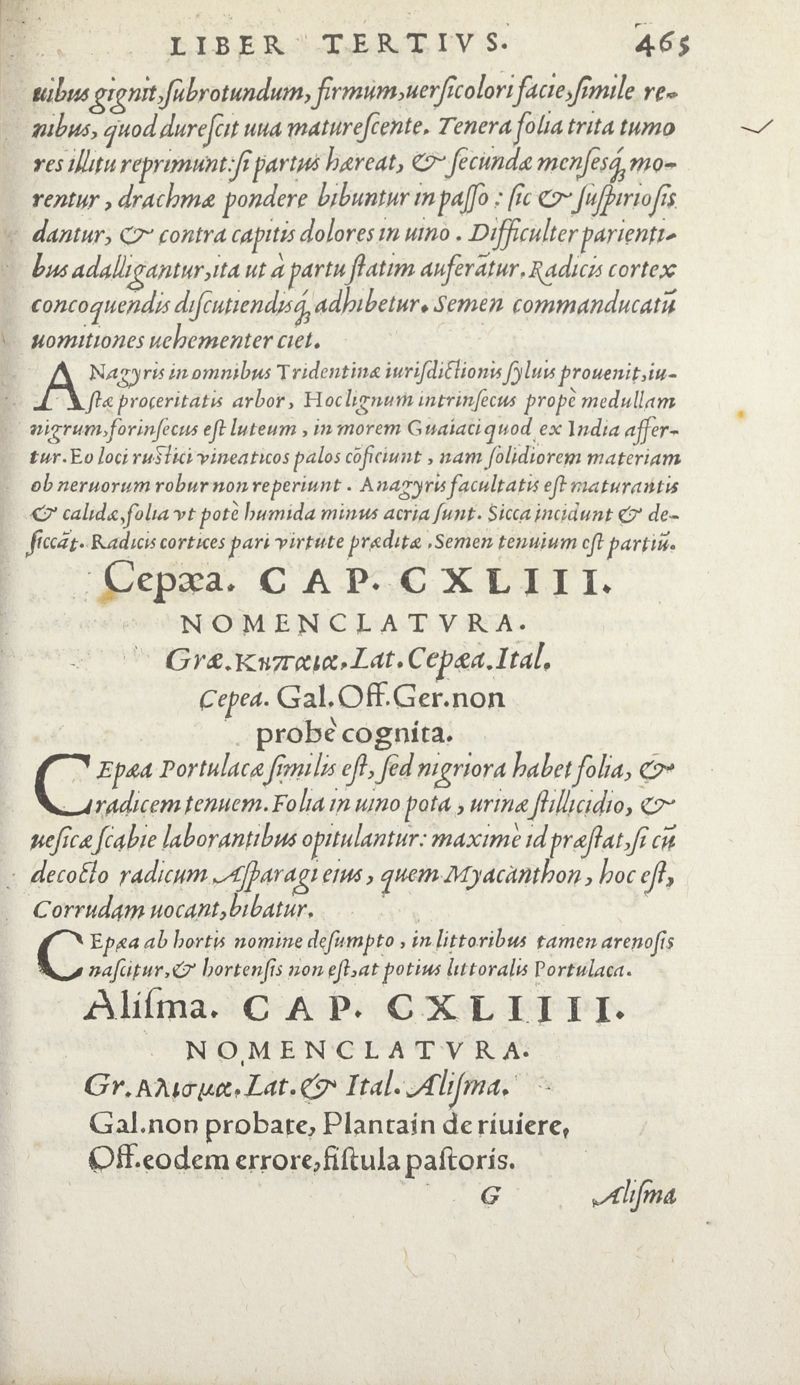 LIBER TERTIVS. 465
uibus gignit, ſubrotundum, firmum, uerſicolori facie, ſimile re-
nibus, quod dureſcit uua matureſcente. Tenera folia trita tumo
res illitu reprimunt: ſi partus hæreat, & ſecundæ menſesq́; mo-
rentur, drachmæ pondere bibuntur in paſſo: ſic & ſuſpirioſis
dantur, & contra capitis dolores in uino. Difficulter parienti-
bus adalligantur, ita ut à partu ſtatim auferātur. Radicis cortex
concoquendis diſcutiendisq́; adhibetur. Semen commanducatū
uomitiones uehementer ciet.
ANagyris in omnibus Tridentinæ iuriſdictionis ſyluis prouenit, iu-
ſtæ proceritatis arbor, Hoc lignum intrinſecus propè medullam
nigrum, forinſecus eſt luteum, in morem Guaiaci quod ex India affer-
tur. Eo loci ruſtici vineaticos palos cōficiunt, nam ſolidiorem materiam
ob neruorum robur non reperiunt. Anagyris facultatis eſt maturantis
& calidæ, folia vt potè humida minus acria ſunt. Sicca incidunt & de-
ſiccāt. Radicis cortices pari virtute præditæ. Semen tenuium eſt partiū.
Cepæa. CAP. CXLIII.
NOMENCLATVRA.
Græ. Κηπαια. Lat. Cepæa. Ital.
Cepea. Gal. Off. Ger. non
probè cognita.
CEpæa Portulacæ ſimilis eſt, ſed nigriora habet folia, &
radicem tenuem. Folia in uino pota, urinæ ſtillicidio, &
ueſicæ ſcabie laborantibus opitulantur: maximè id præſtat, ſi cū
decocto radicum Aſparagi eius, quem Myacanthon, hoc eſt,
Corrudam uocant, bibatur.
CEpæa ab hortis nomine deſumpto, in littoribus tamen arenoſis
naſcitur, & hortenſis non eſt, at potius littoralis Portulaca.
Aliſma. CAP. CXLIIII.
NOMENCLATVRA.
Gr. Αλισμα. Lat. & Ital. Aliſma.
Gal. non probate, Plantain de riuiere,
Off. eodem errore, fiſtula paſtoris.
G Aliſma